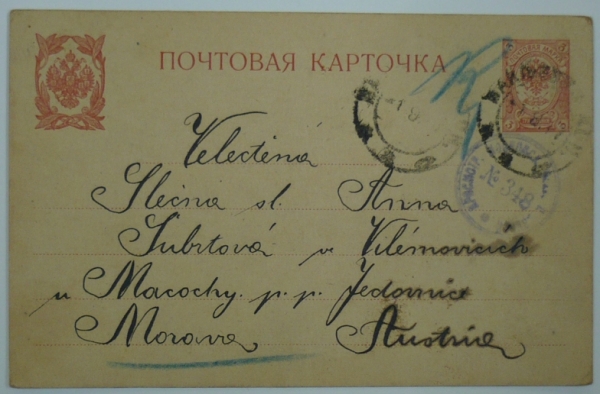 ПОЧТОВАЯ КАРТОЧКА
Velectěná
Slečna sl. Anna
Šubrtová v Vilémovicích
u Macochy. p. p. Jedovnice
Morava Austria
№ 318